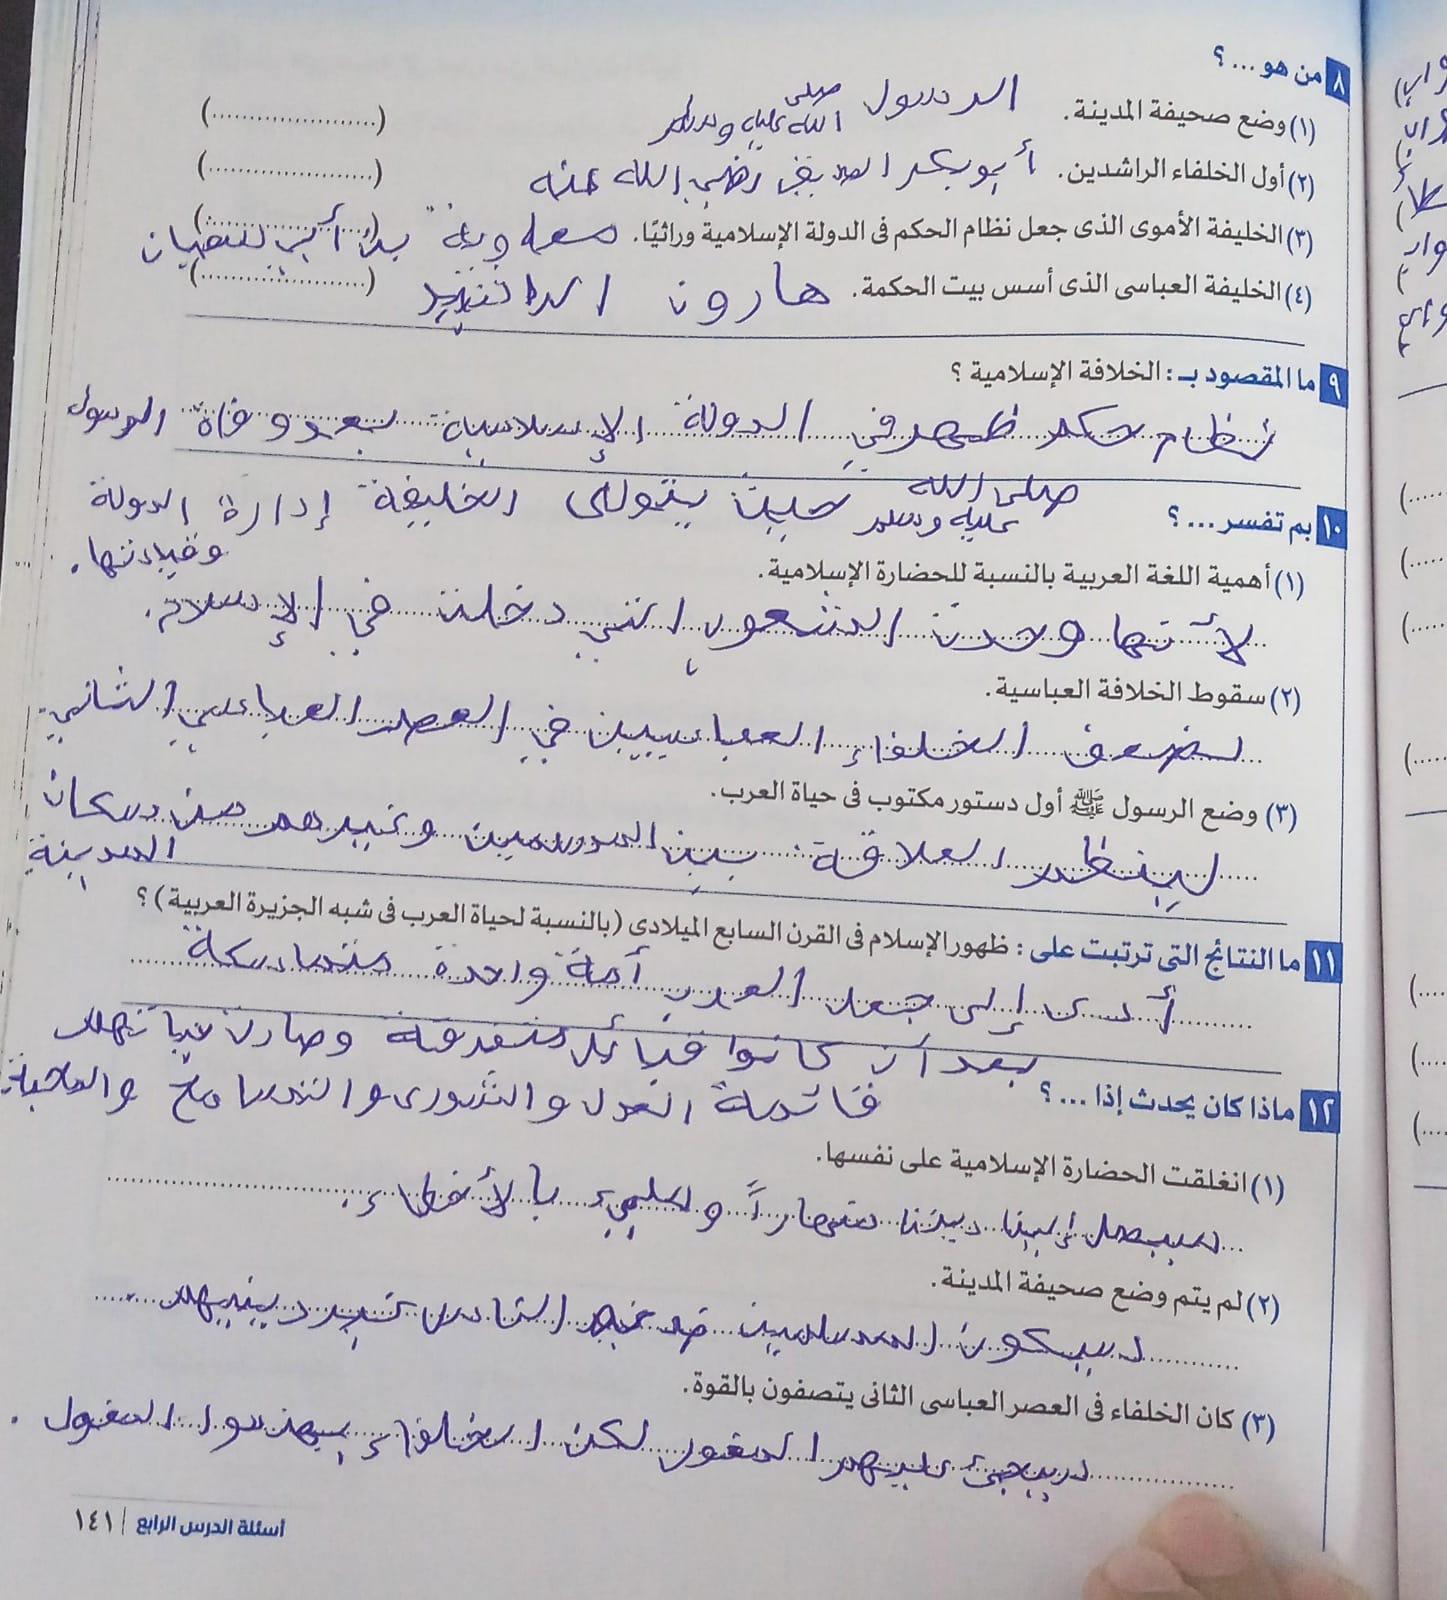 ٨ من هو ... ؟
(١) وضع صحيفة المدينة. الرسول صلى الله عليه وسلم (......................)
(٢) أول الخلفاء الراشدين. أبو بكر الصديق رضي الله عنه (......................)
(٣) الخليفة الأموى الذى جعل نظام الحكم فى الدولة الإسلامية وراثيًا. معاوية بن أبي سفيان (......................)
(٤) الخليفة العباسى الذى أسس بيت الحكمة. هارون الرشيد (......................)
٩ ما المقصود بـ : الخلافة الإسلامية ؟
نظام حكم ظهر في الدولة الإسلامية بعد وفاة الرسول
صلى الله عليه وسلم حيث يتولى الخليفة إدارة الدولة
وقيادتها.
١٠ بم تفسر ... ؟
(١) أهمية اللغة العربية بالنسبة للحضارة الإسلامية.
لأنها وحدت الشعوب التي دخلت في الإسلام.
(٢) سقوط الخلافة العباسية.
لضعف الخلفاء العباسيين في العصر العباسي الثاني.
(٣) وضع الرسول ﷺ أول دستور مكتوب فى حياة العرب.
لينظم العلاقة بين المسلمين وغيرهم من سكان
المدينة
١١ ما النتائج التى ترتبت على : ظهور الإسلام فى القرن السابع الميلادى (بالنسبة لحياة العرب فى شبه الجزيرة العربية) ؟
أدى إلى جعل العرب أمة واحدة متماسكة
بعد أن كانوا قبائل متفرقة وصارت حياتهم
قائمة العدل والشورى والتسامح والمحبة
١٢ ماذا كان يحدث إذا ... ؟
(١) انغلقت الحضارة الإسلامية على نفسها.
سيصل إلينا ديننا منهاراً ومليء بالأخطاء.
(٢) لم يتم وضع صحيفة المدينة.
سيكون المسلمين الناس غير دينهم
(٣) كان الخلفاء فى العصر العباسى الثانى يتصفون بالقوة.
سيجئ عليهم المغول لكن الخلفاء المغول.
أسئلة الدرس الرابع | ١٤١